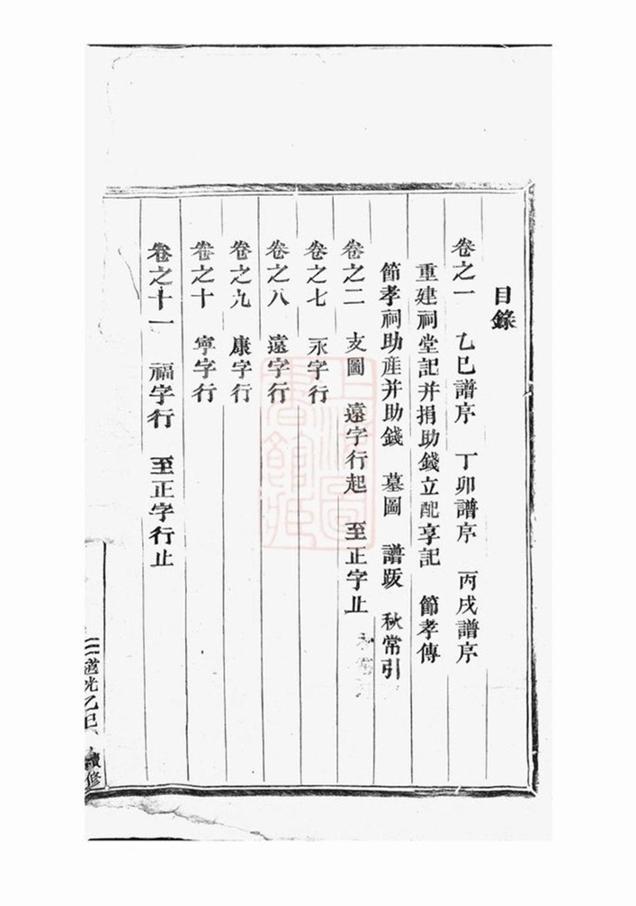 目錄
卷之一 乙巳譜序 丁卯譜序 丙戌譜序
重建祠堂記并捐助錢立配享記 節孝傳
節孝祠助產并助錢 墓圖 譜跋 秋常引
卷之二 支圖 遠字行起 至正字止
卷之七 永字行
卷之八 遠字行
卷之九 康字行
卷之十 寧字行
卷之十一 福字行 至正字行止
道光乙巳 續修